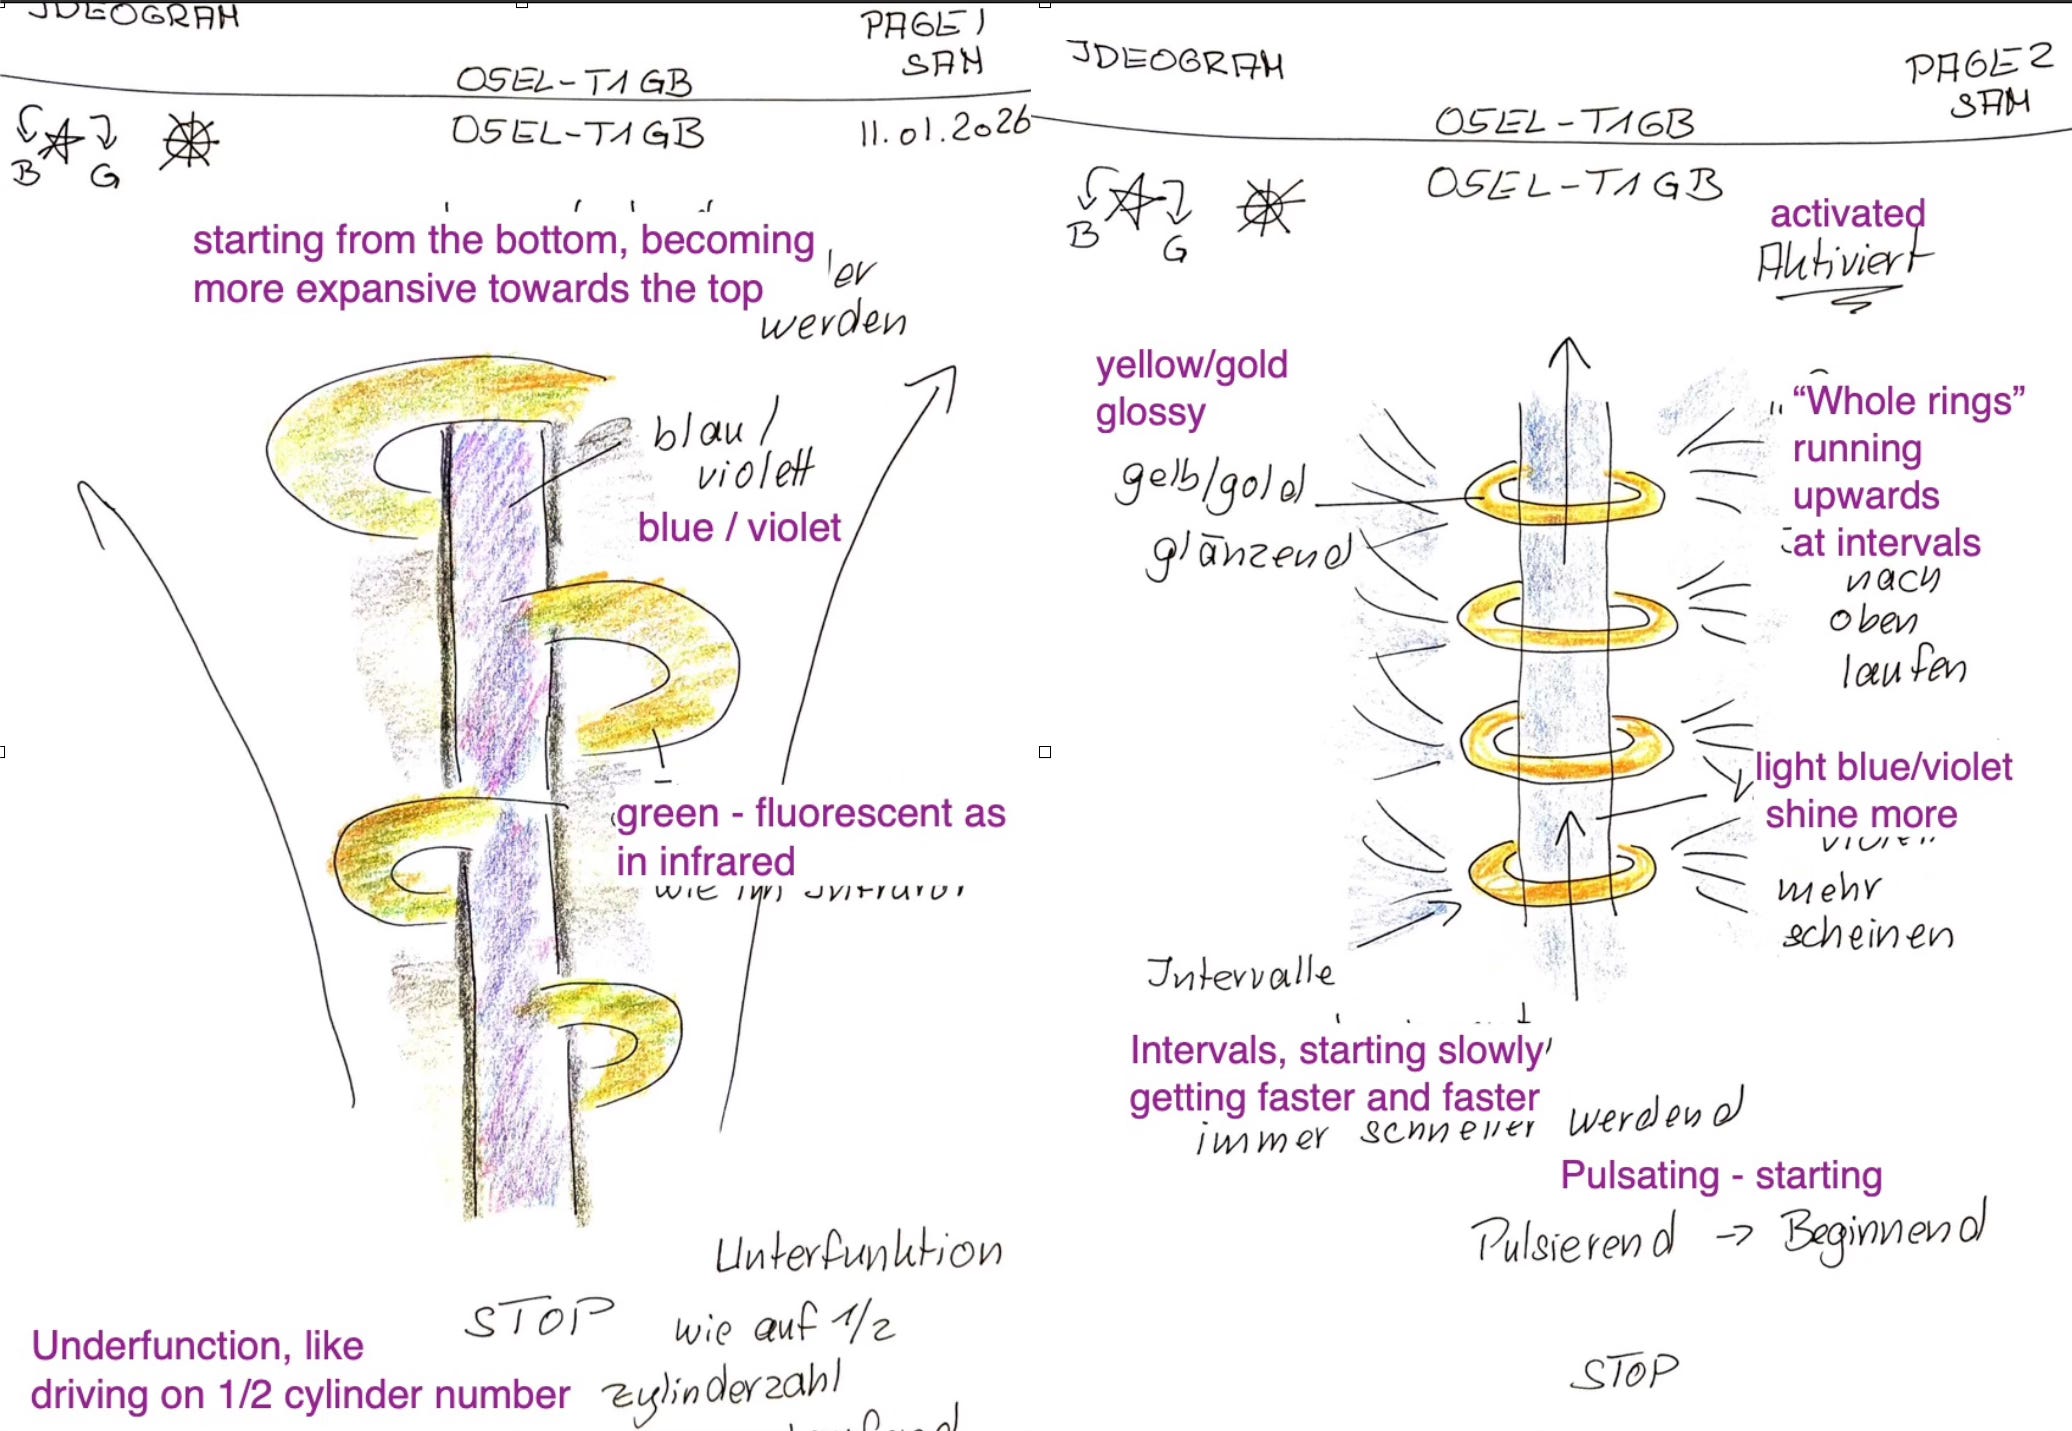 JDEOGRAM
PAGE 1
SAM
O5EL-T1GB
O5EL-T1GB
11.01.2026
B G
starting from the bottom, becoming
more expansive towards the top
werden
blau /
violett
blue / violet
green - fluorescent as
in infrared
wie im Infrarot
Unterfunktion
STOP wie auf 1/2
Zylinderzahl
Underfunction, like
driving on 1/2 cylinder number
JDEOGRAM
PAGE 2
SAM
O5EL-T1GB
O5EL-T1GB
B G
activated
Aktiviert
yellow/gold
glossy
gelb/gold
glänzend
“Whole rings”
running
upwards
at intervals
nach
oben
laufen
light blue/violet
shine more
mehr
scheinen
Intervalle
Intervals, starting slowly
getting faster and faster
immer schneller werdend
Pulsating - starting
Pulsierend -> Beginnend
STOP